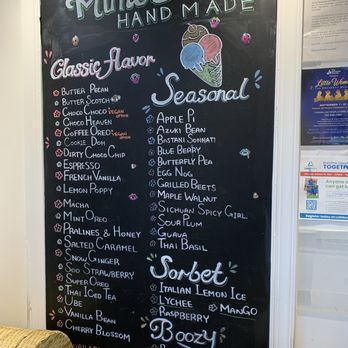 HAND MADE
Classic Flavor
BUTTER PECAN
BUTTER SCOTCH
CHOCO CHOCO VEGAN OPTION
CHOCO HEAVEN
COFFEE OREO VEGAN OPTION
COOKIE DOH
DIRTY CHOCO CHIP
ESPRESSO
FRENCH VANILLA
LEMON POPPY
MACHA
MINT OREO
PRALINES & HONEY
SALTED CARAMEL
SNOW GINGER
SOO STRAWBERRY
SUPER OREO
THAI ICED TEA
UBE
VANILLA BEAN
CHERRY BLOSSOM
Seasonal
APPLE PI
AZUKI BEAN
BASTANI SONNATI
BLUE BERRY
BUTTERFLY PEA
EGG NOG
GRILLED BEETS
MAPLE WALNUT
SICHUAN SPICY GIRL
SOUR PLUM
GUAVA
THAI BASIL
Sorbet
ITALIAN LEMON ICE
LYCHEE
MANGO
RASPBERRY
Boozy
Little Women
TOGETHER
Anyone
can get